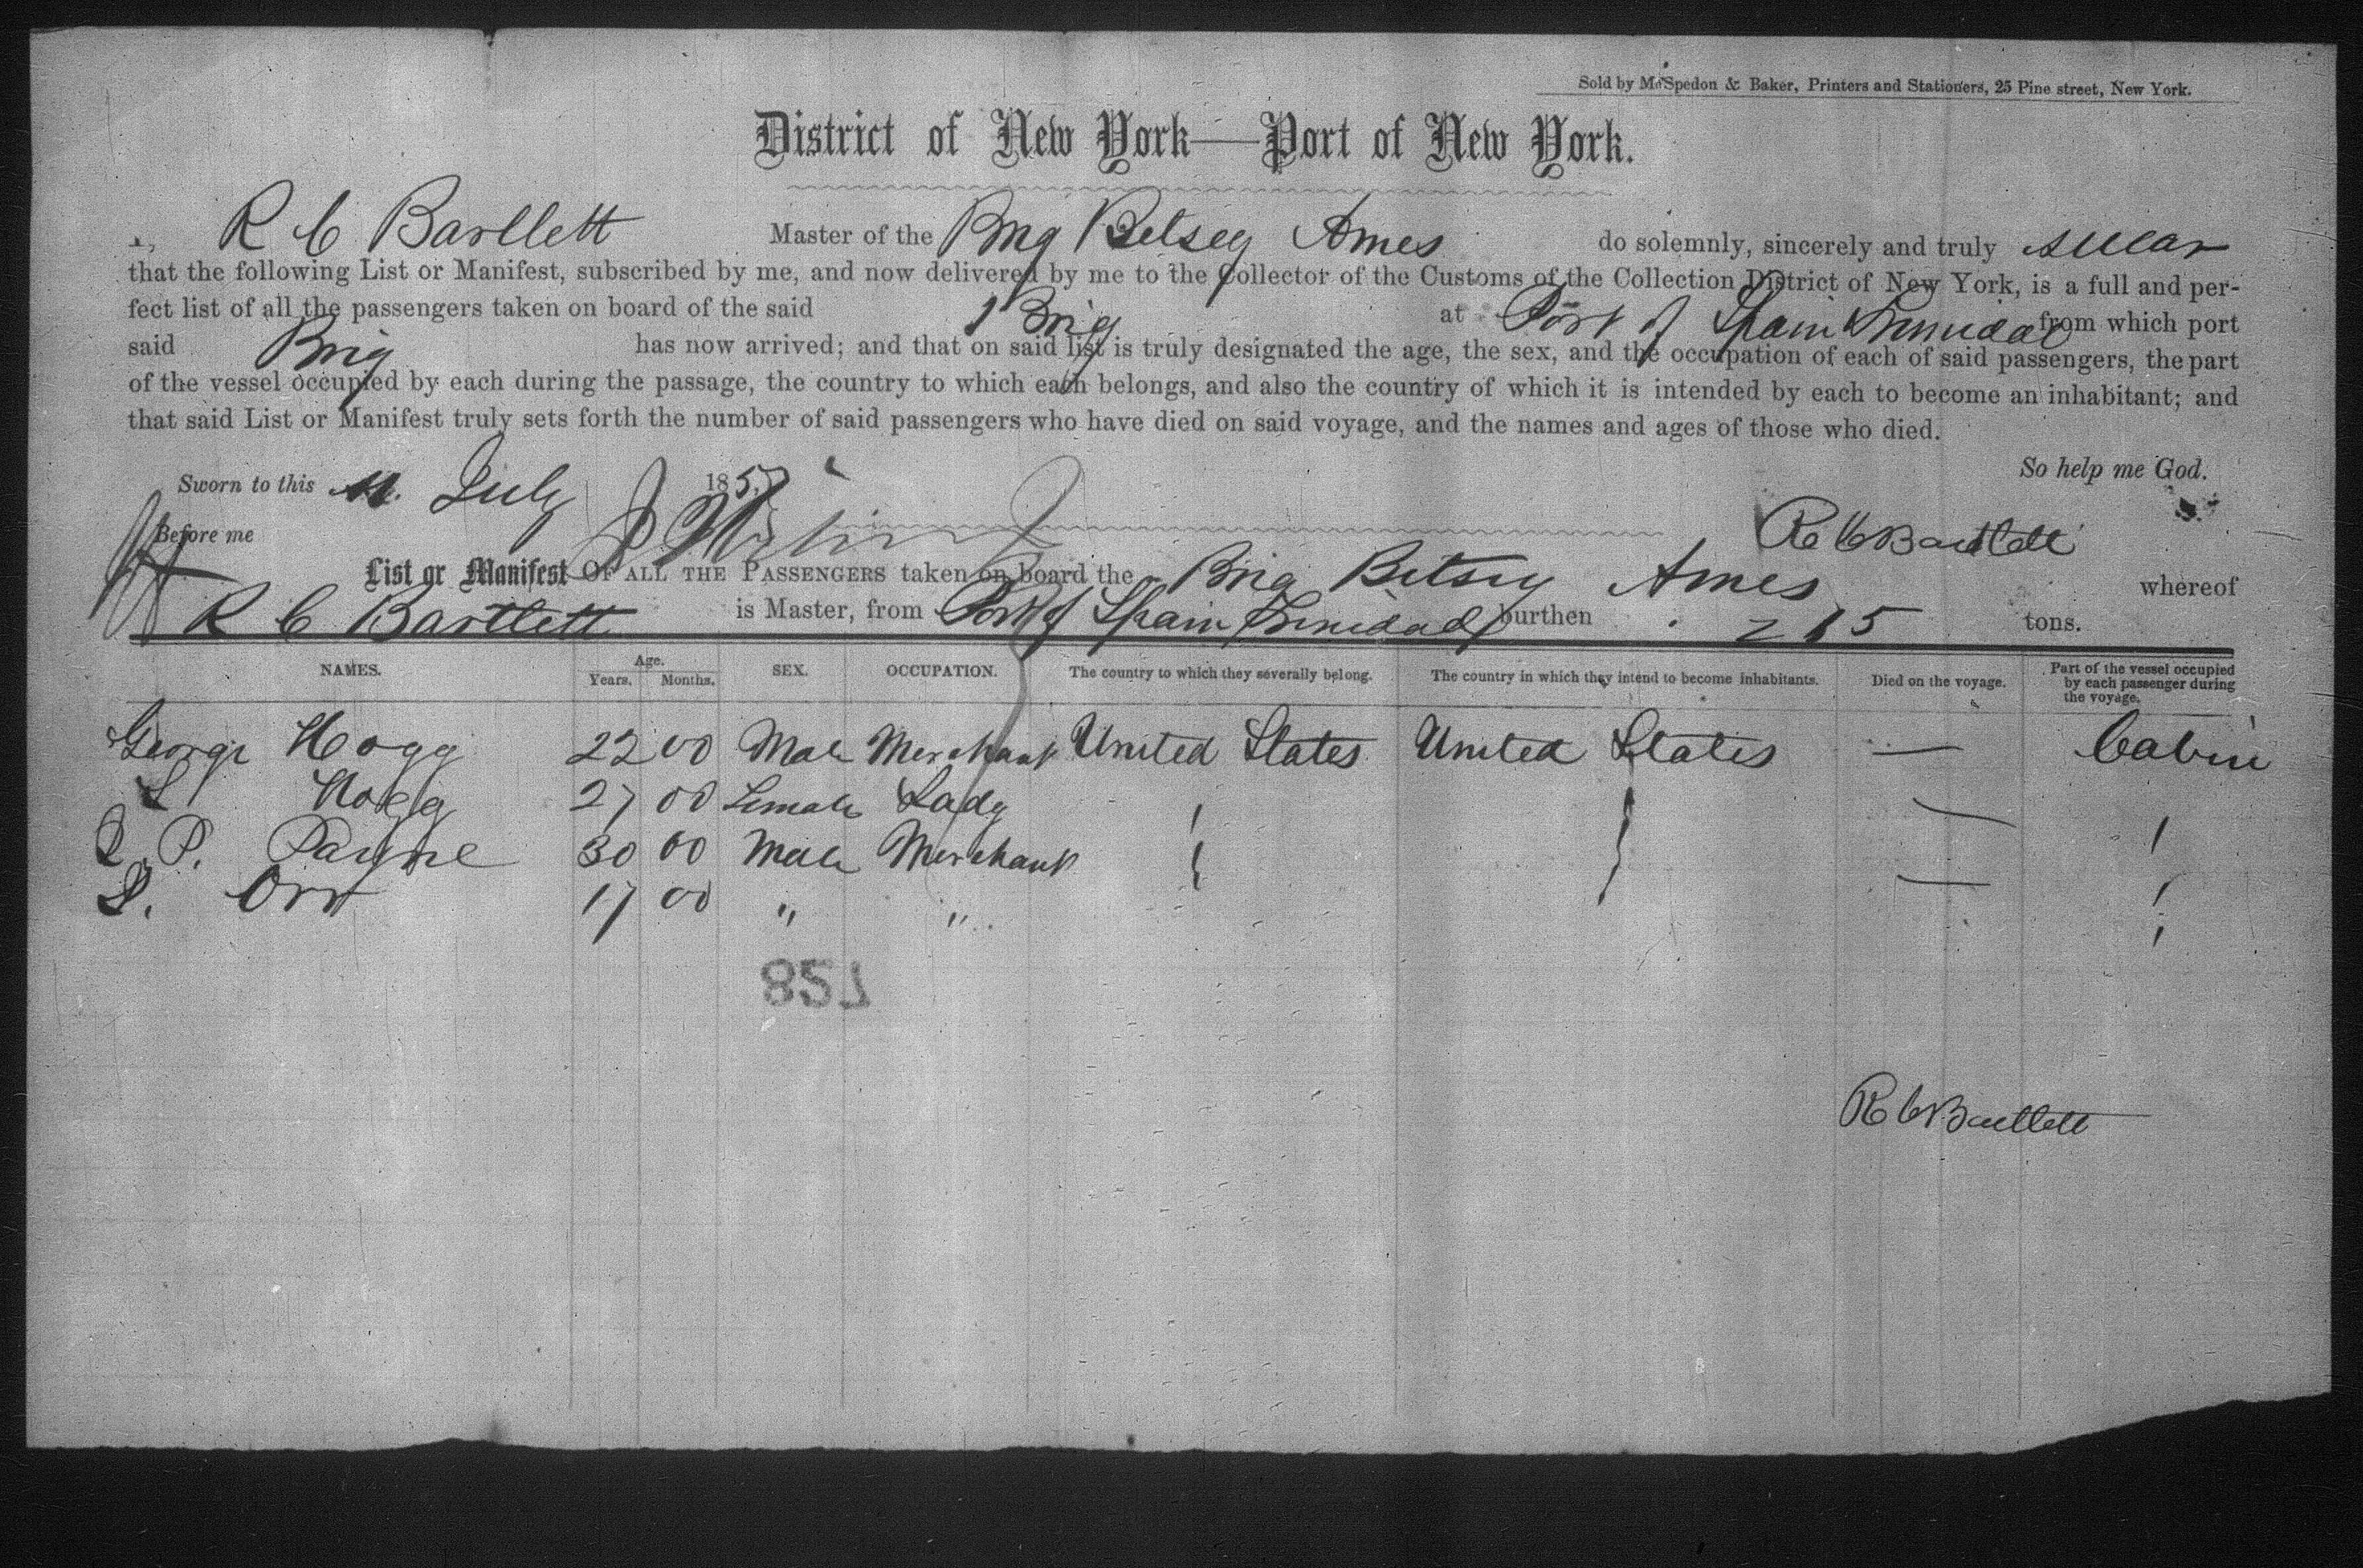 Sold by McSpedon & Baker, Printers and Stationers, 25 Pine street, New York.
District of New York—Port of New York.
I, R C Bartlett Master of the Brig Betsey Ames do solemnly, sincerely and truly swear
that the following List or Manifest, subscribed by me, and now delivered by me to the Collector of the Customs of the Collection District of New York, is a full and per-
fect list of all the passengers taken on board of the said Brig at Port of Spain Trinidad from which port
said Brig has now arrived; and that on said list is truly designated the age, the sex, and the occupation of each of said passengers, the part
of the vessel occupied by each during the passage, the country to which each belongs, and also the country of which it is intended by each to become an inhabitant; and
that said List or Manifest truly sets forth the number of said passengers who have died on said voyage, and the names and ages of those who died.
So help me God.
Sworn to this July 185
Before me R C Bartlett
List or Manifest OF ALL THE PASSENGERS taken on board the Brig Betsey Ames whereof
R C Bartlett is Master, from Port of Spain Trinidad burthen 265 tons.
NAMES. Age. Years. Months. SEX. OCCUPATION. The country to which they severally belong. The country in which they intend to become inhabitants. Died on the voyage. Part of the vessel occupied by each passenger during the voyage.
George Hogg 22 00 Male Merchant United States United States — Cabin
Hogg 27 00 Female Lady —
P. Payne 30 00 Male Merchant —
Orr 17 00 " "
857
R C Bartlett